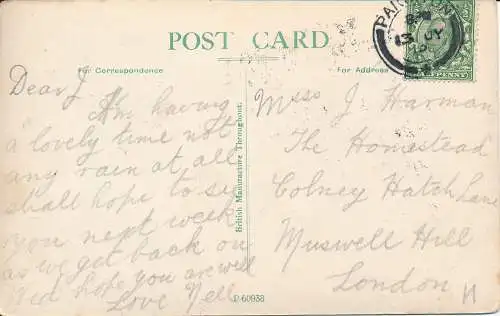 POST CARD
For Correspondence
For Address
British Manufacture Throughout.
Dear J.
Am having
a lovely time not
any rain at all
shall hope to see
you next week
as we get back on
Wed hope you are well
Love Nell
Miss J. Harman
The Homestead
Colney Hatch Lane
Muswell Hill
London N
P 60938
JY